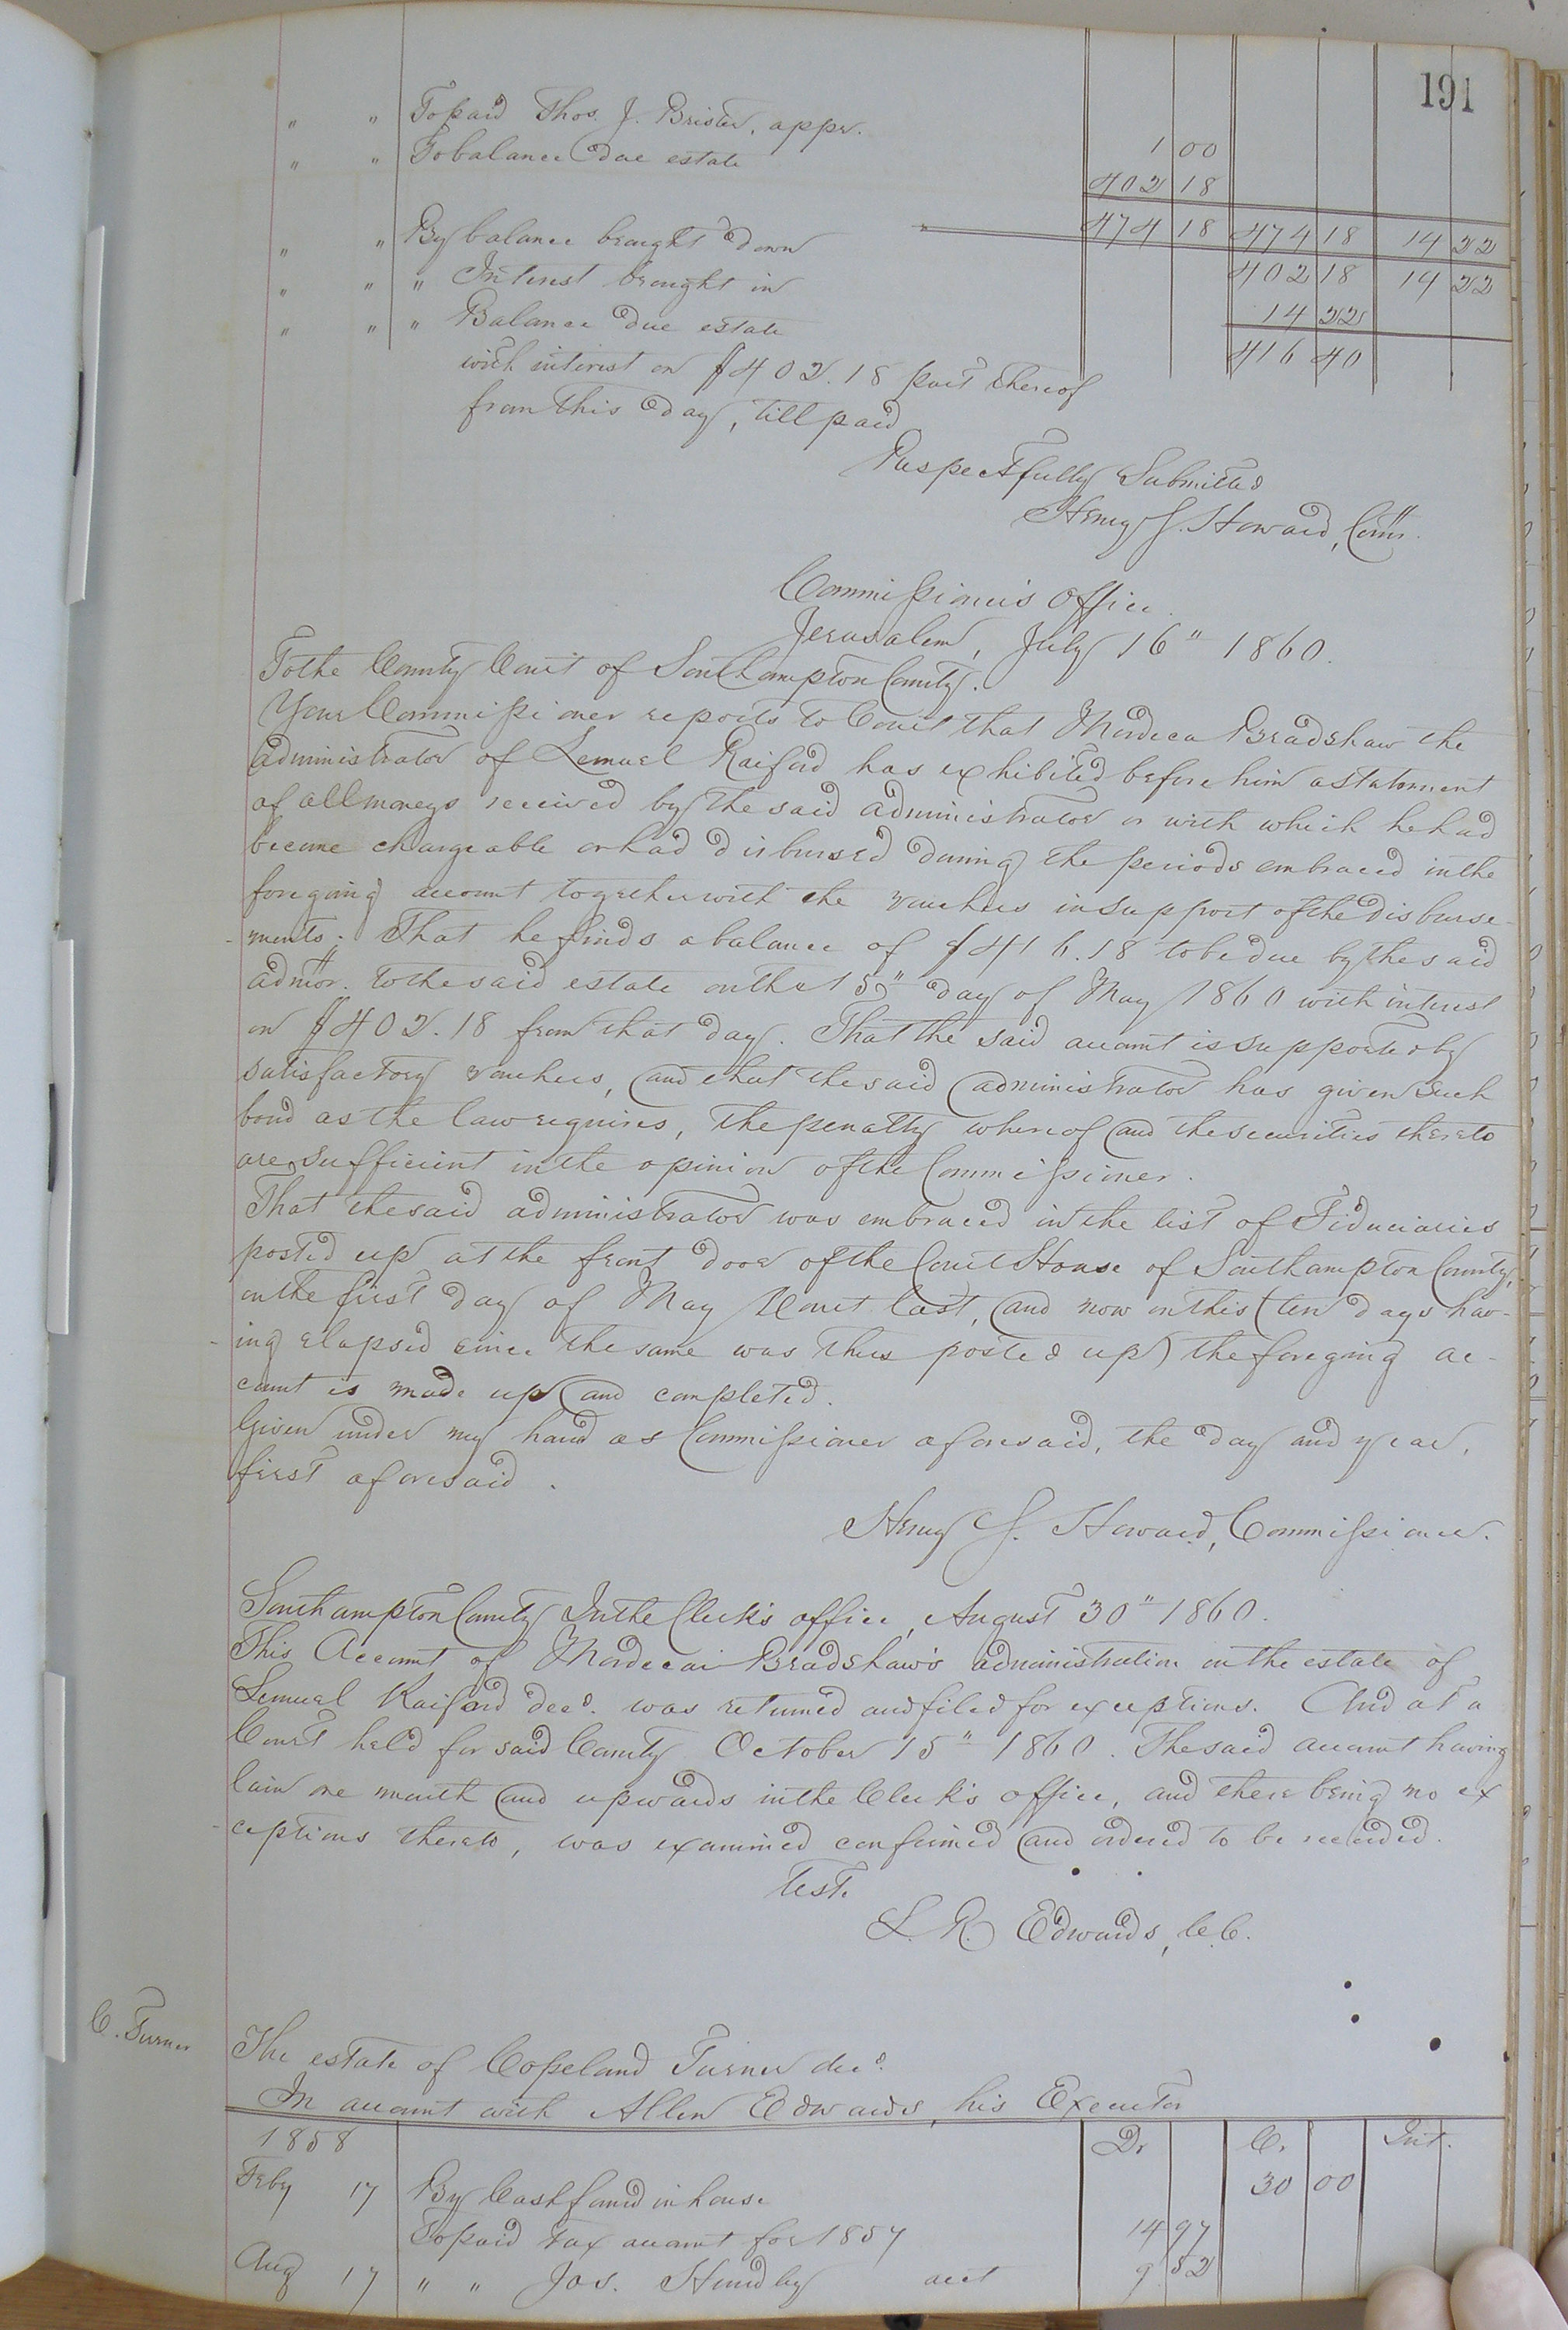 191
" " To paid Thos. J. Brister, appr. 1 00
" " To balance due estate 402 18
474 18 474 18 14 22
" " By balance brought down 402 18 14 22
" " " Interest brought in 14 22
" " " Balance due estate 416 40
with interest on $402.18 part thereof
from this day, till paid
Respectfully Submitted
Henry S. Howard, Comr.
Commissioner's Office.
Jerusalem, July 16" 1860.
To the County Court of Southampton County.
Your Commissioner reports to Court that Mordeca Bradshaw the
administrator of Lemuel Raiford has exhibited before him a statement
of all moneys received by the said administrator or with which he had
become chargeable or had disbursed during the periods embraced in the
foregoing account together with the vouchers in support of the disburse-
ments. That he finds a balance of $416.18 to be due by the said
admor. to the said estate on the 15" day of May 1860 with interest
on $402.18 from that day. That the said account is supported by
satisfactory vouchers, and that the said administrator has given such
bond as the law requires, the penalty whereof and the securities thereto
are sufficient in the opinion of the Commissioner.
That the said administrator was embraced in the list of Fiduciaries
posted up at the front door of the Court House of Southampton County,
on the first day of May Court last, and now on this (ten days hav-
ing elapsed since the same was thus posted up) the foregoing ac-
count is made up and completed.
Given under my hand as Commissioner aforesaid, the day and year,
first aforesaid.
Henry S. Howard, Commissioner.
Southampton County In the Clerk's office, August 30" 1860.
This Account of Mordecai Bradshaw's administration on the estate of
Lemuel Raiford decd. was returned and filed for exceptions. And at a
Court held for said County October 15" 1860. The said account having
lain one month and upwards in the Clerk's office, and there being no ex
-ceptions thereto, was examined confirmed and ordered to be recorded.
Test.
L. R. Edwards, C.C.
C. Turner
The estate of Copeland Turner decd.
In account with Allen Edwards, his Executor
1858 Dr Cr. Int.
Feby 17 By Cash found in house 30 00
To paid tax account for 1857 14 97
Aug 17 " " Jos. Hundley acct 9 52